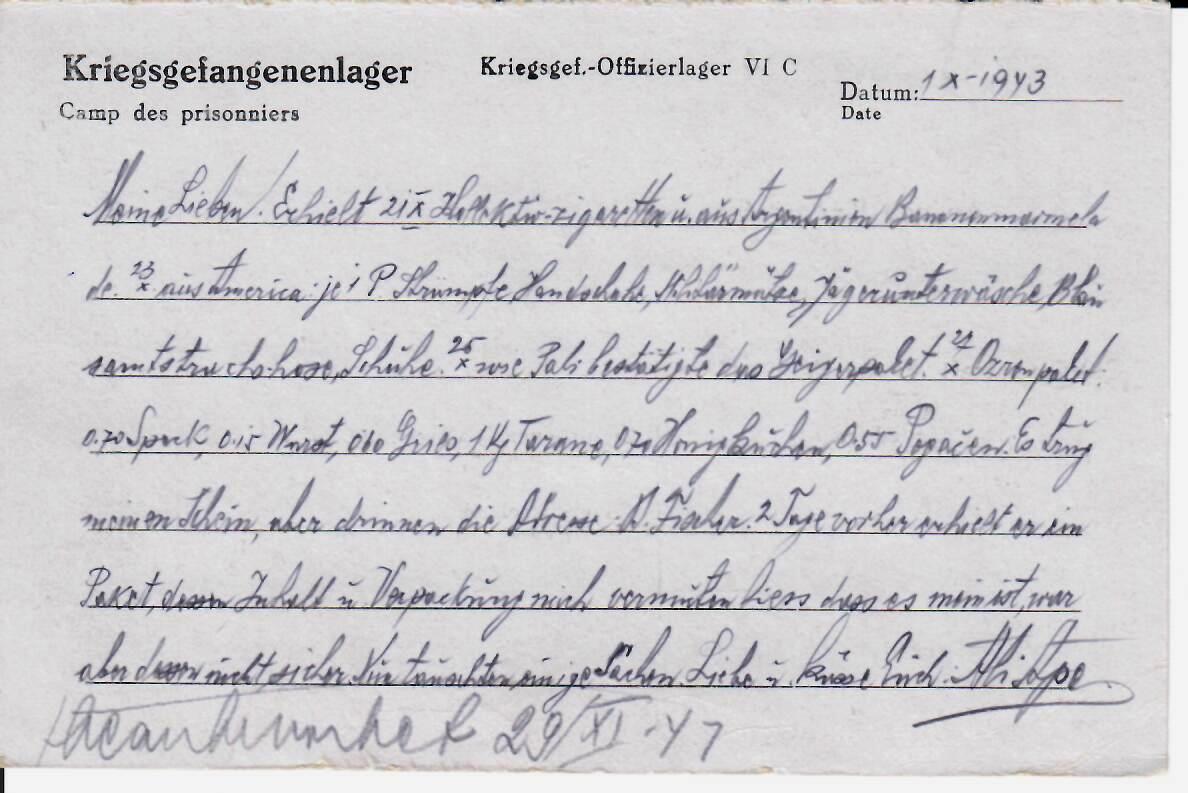 Kriegsgefangenenlager
Camp des prisonniers
Kriegsgef.-Offizierlager VI C
Datum: 1 X-1943
Date
Meine Lieben! Erhielt 21 IX Kollektiv-zigaretten u. aus Argentinien Bananenmarmela
de. 23 x aus America: je 1 P. Strümpfe Handschuhe, Jägerunterwäsche, Blau
hose, Schuhe. 25 x wie Pali bestätigte das Geigerpaket. x Ozronpaket:
0.70 Speck, 0.15 Wurst, 0.60 Gries, 1 Kg 0.70 Honigkuchen, 0.55 Pogačen. Es trug
meinen Schein, aber drinnen die Adresse Fischer. 2 Tage vorher erhielt er ein
Paket, dessen Inhalt u Verpackung mich vermuten liess dass es mein ist, war
aber dessen nicht sicher. Nun tauschten einige Sachen. Liebe u. küsse Euch. Ali Ape
29/XI-47